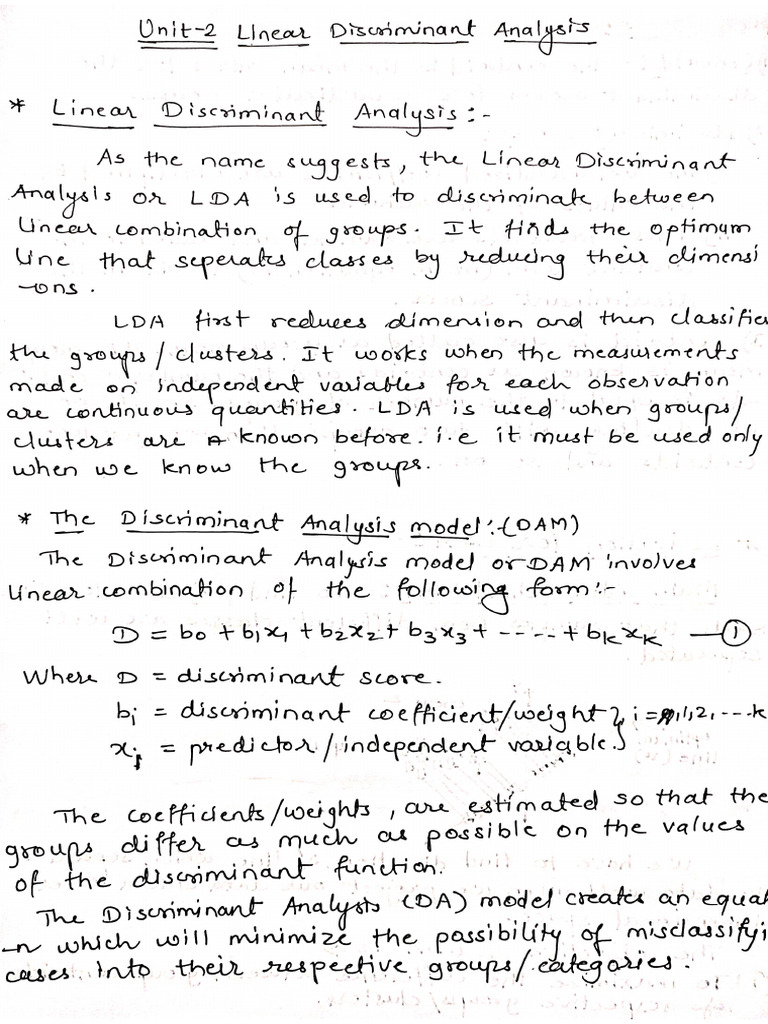 Unit-2 Linear Discriminant Analysis
* Linear Discriminant Analysis:-
As the name suggests, the Linear Discriminant
Analysis or LDA is used to discriminate between
linear combination of groups. It finds the optimum
line that seperates classes by reducing their dimensi
-ons.
LDA first reduces dimension and then classifies
the groups/clusters. It works when the measurements
made on independent variables for each observation
are continuous quantities. LDA is used when groups/
clusters are known before. i.e it must be used only
when we know the groups.
* The Discriminant Analysis model:-(DAM)
The Discriminant Analysis model or DAM involves
linear combination of the following form:-
D = b0 + b1x1 + b2x2 + b3x3 + ----- + bkxk —①
Where D = discriminant score.
bi = discriminant coefficient/weight }, i = 1,2,---k
xi = predictor/independent variable. }
The coefficients/weights, are estimated so that the
groups differ as much as possible on the values
of the discriminant function.
The Discriminant Analysis (DA) model creates an equat
-n which will minimize the possibility of misclassifyi
cases into their respective groups/categories.